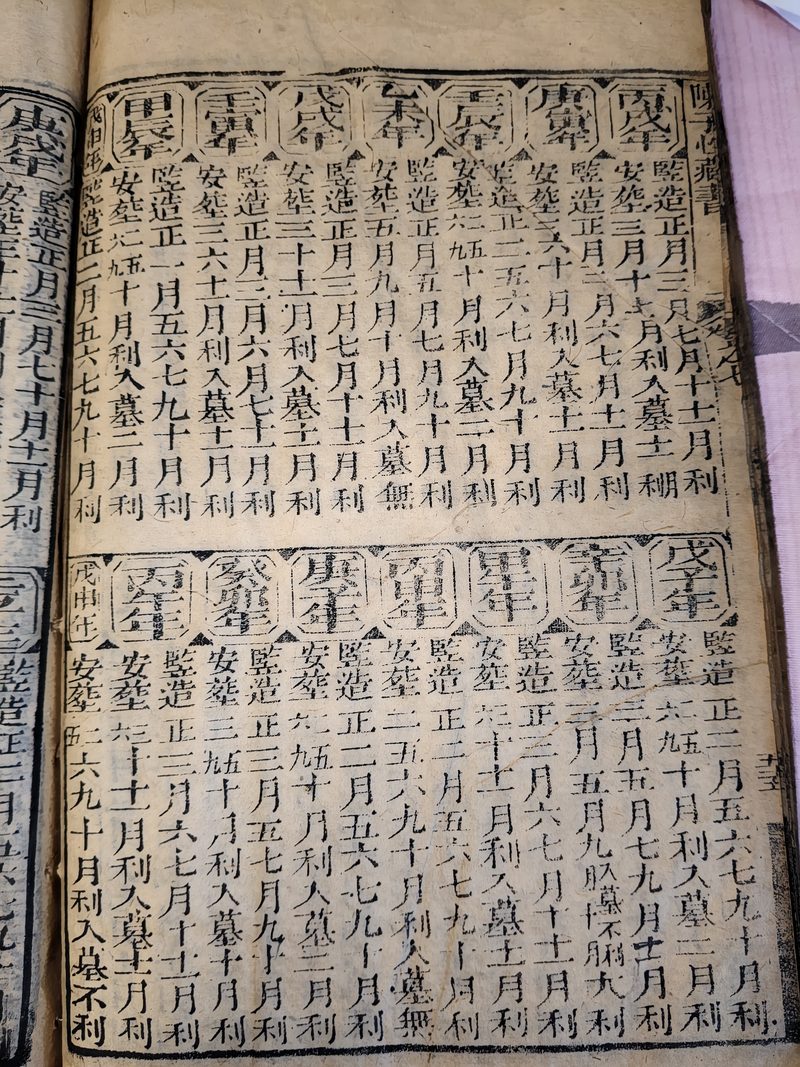 陳子性藏書
卷之七
丙戌年
竪造正月三月七月十十一月利
安塟三月十十一月利入墓十一月利
庚寅年
竪造正月二月六月七月十一月利
安塟三六十一月利入墓十一月利
壬辰年
竪造正二五六七月九十月利
安塟二五六九十月利入墓二月利
乙未年
竪造正月五月七月九十月利
安塟五月九月十月利入墓無
戊戌年
竪造正月三月七月十十一月利
安塟三十十一月利入墓十一月利
壬寅年
竪造正月二月六月七十一月利
安塟三六十一月利入墓十一月利
甲辰年
竪造正二月五六七九十月利
安塟二五六九十月利入墓二月利
戊申年竪造正二月五六七九十月利
戊子年
竪造正二月五六七九十月利
安塟二五六九十月利入墓二月利
辛卯年
竪造三月五月七九月十一月利
安塟三月五月九月十月大利入墓不利
甲午年
竪造正三月六七月十十一月利
安塟三六十十一月利入墓十一月利
丙申年
竪造正二月五六七九十月利
安塟二五六九十月利入墓無
庚子年
竪造正二月五六七九十月利
安塟二五六九十月利入墓二月利
癸卯年
竪造正三月五七月九十月利
安塟三五九十月利入墓十月利
丙午年
竪造正三月六七月十十一月利
安塟三六十十一月利入墓十一月利
戊申年
安塟二五六九十月利入墓不利
庚戌年
竪造正月三月七十月十一月利
竪造正二月五六七九十月利